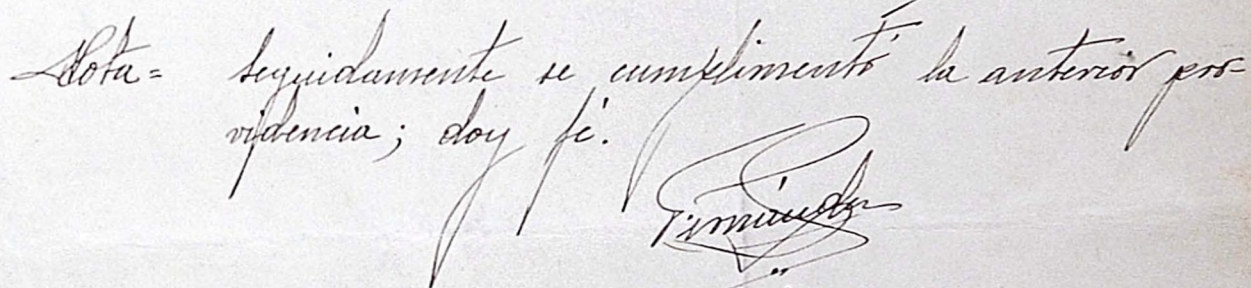 Nota= Seguidamente se cumplimentó la anterior pro-
videncia; doy fé.